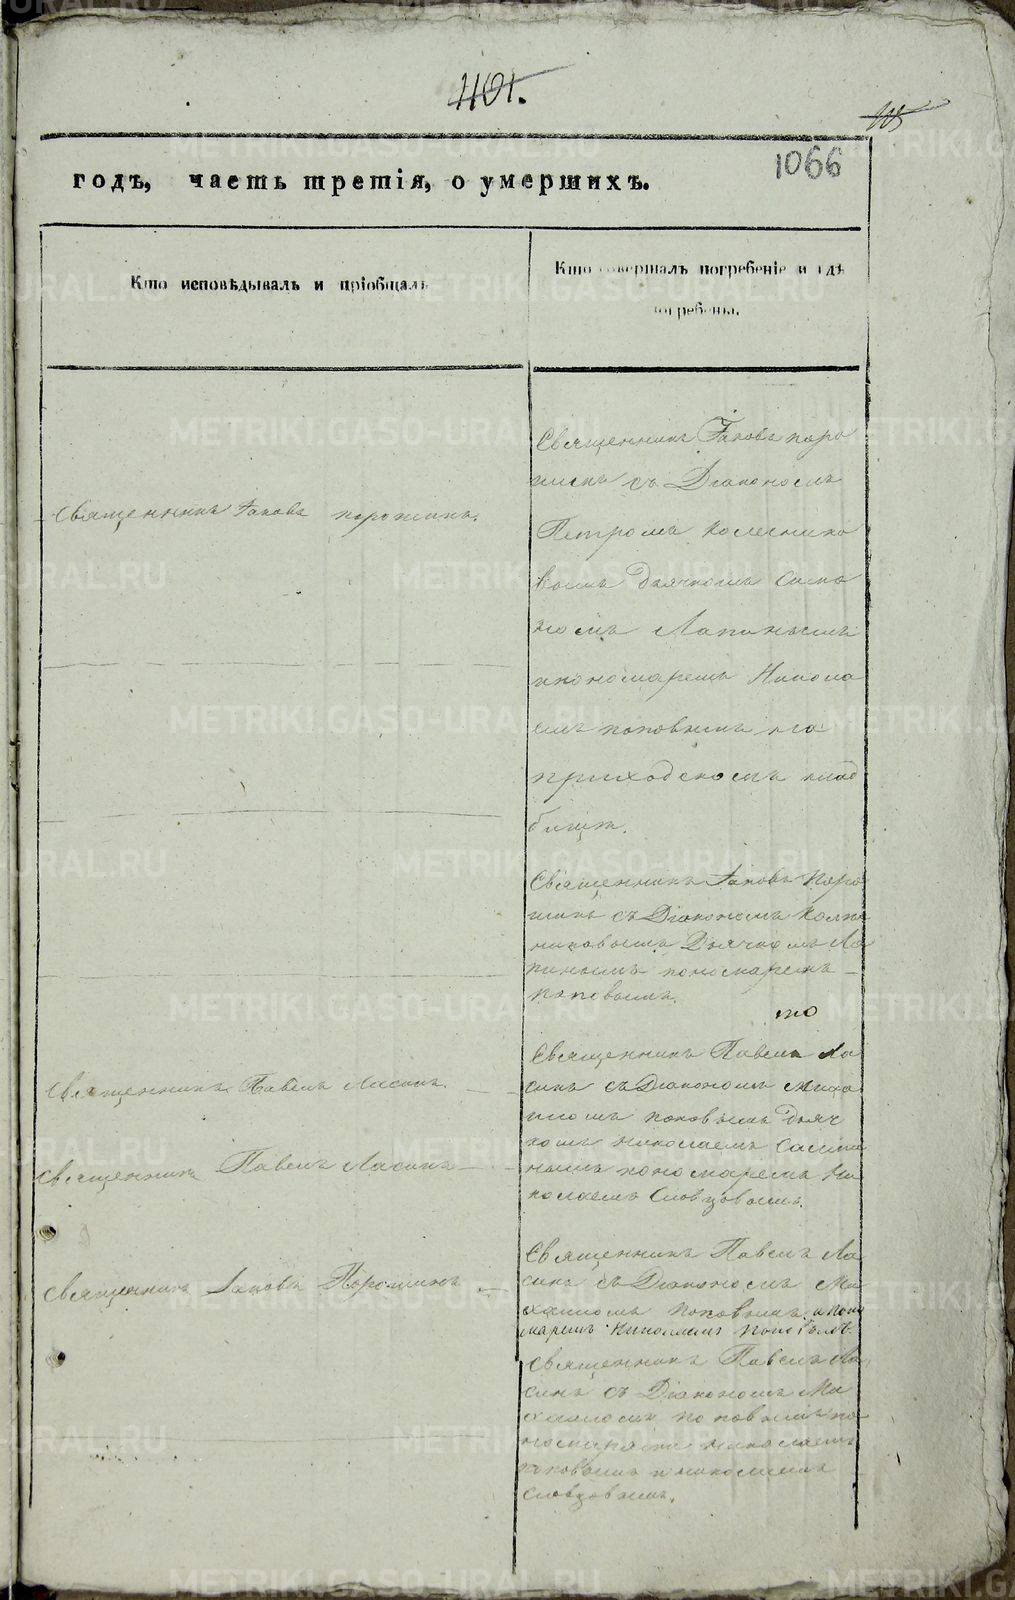 1101.
105
1066
годъ, часть третія, о умершихъ.
Кто исповѣдывалъ и пріобщалъ
Кто совершалъ погребеніе и гдѣ
погребены.
Священникъ Іаковъ порошинъ.
Священникъ Іаковъ поро
шинъ съ Діакономъ
Петромъ Колесник
вымъ дьячкомъ
номъ Лапинымъ
ипономаремъ Никола
емъ поповымъ на
приходскомъ клад
бищѣ.
Священникъ Іаковъ Поро
шинъ съ Діакономъ
никовымъ Дьячкомъ Ла
пинымъ пономаремъ
поповымъ.
то
Священникъ Павелъ Ласинъ.
Священникъ Павелъ Ла
синъ съ Діакономъ Миха
иломъ поповымъ дьяч
комъ николаемъ
нымъ пономаремъ Ни
колаемъ Словцовымъ.
Священникъ Павелъ Ласинъ
Священникъ Іаковъ Порошинъ
Священникъ Павелъ Ла
синъ съ Діакономъ Ми
хаиломъ поповымъ и поно
маремъ Николаемъ поповымъ.
Священникъ Павелъ Ла
синъ съ Діакономъ Ми
хаиломъ поповымъ по
номарями николаемъ
поповымъ и николаемъ
словцовымъ.
METRIKI.GASO-URAL.RU